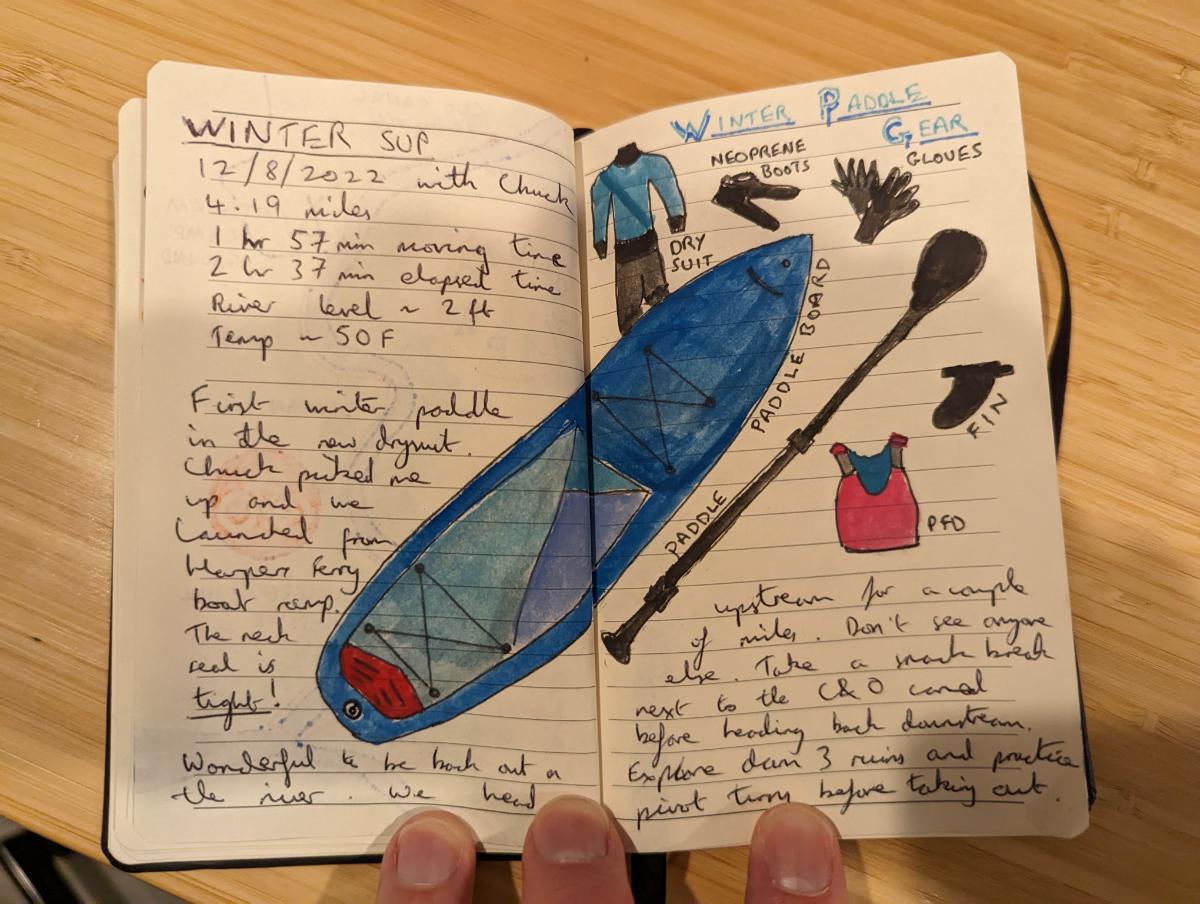 WINTER SUP
12/8/2022 with Chuck
4.19 miles
1 hr 57 min moving time
2 hr 37 min elapsed time
River level ~ 2 ft
Temp ~ 50 F
First winter paddle
in the new drysuit.
Chuck picked me
up and we
launched from
Harpers Ferry
boat ramp.
The neck
seal is
tight!
Wonderful to be back out on
the river. We head
WINTER PADDLE
GEAR
DRY
SUIT
NEOPRENE
BOOTS
GLOVES
PADDLE BOARD
PADDLE
FIN
PFD
upstream for a couple
of miles. Don't see anyone
else. Take a snack break
next to the C&O canal
before heading back downstream.
Explore dam 3 ruins and practice
pivot turns before taking out.